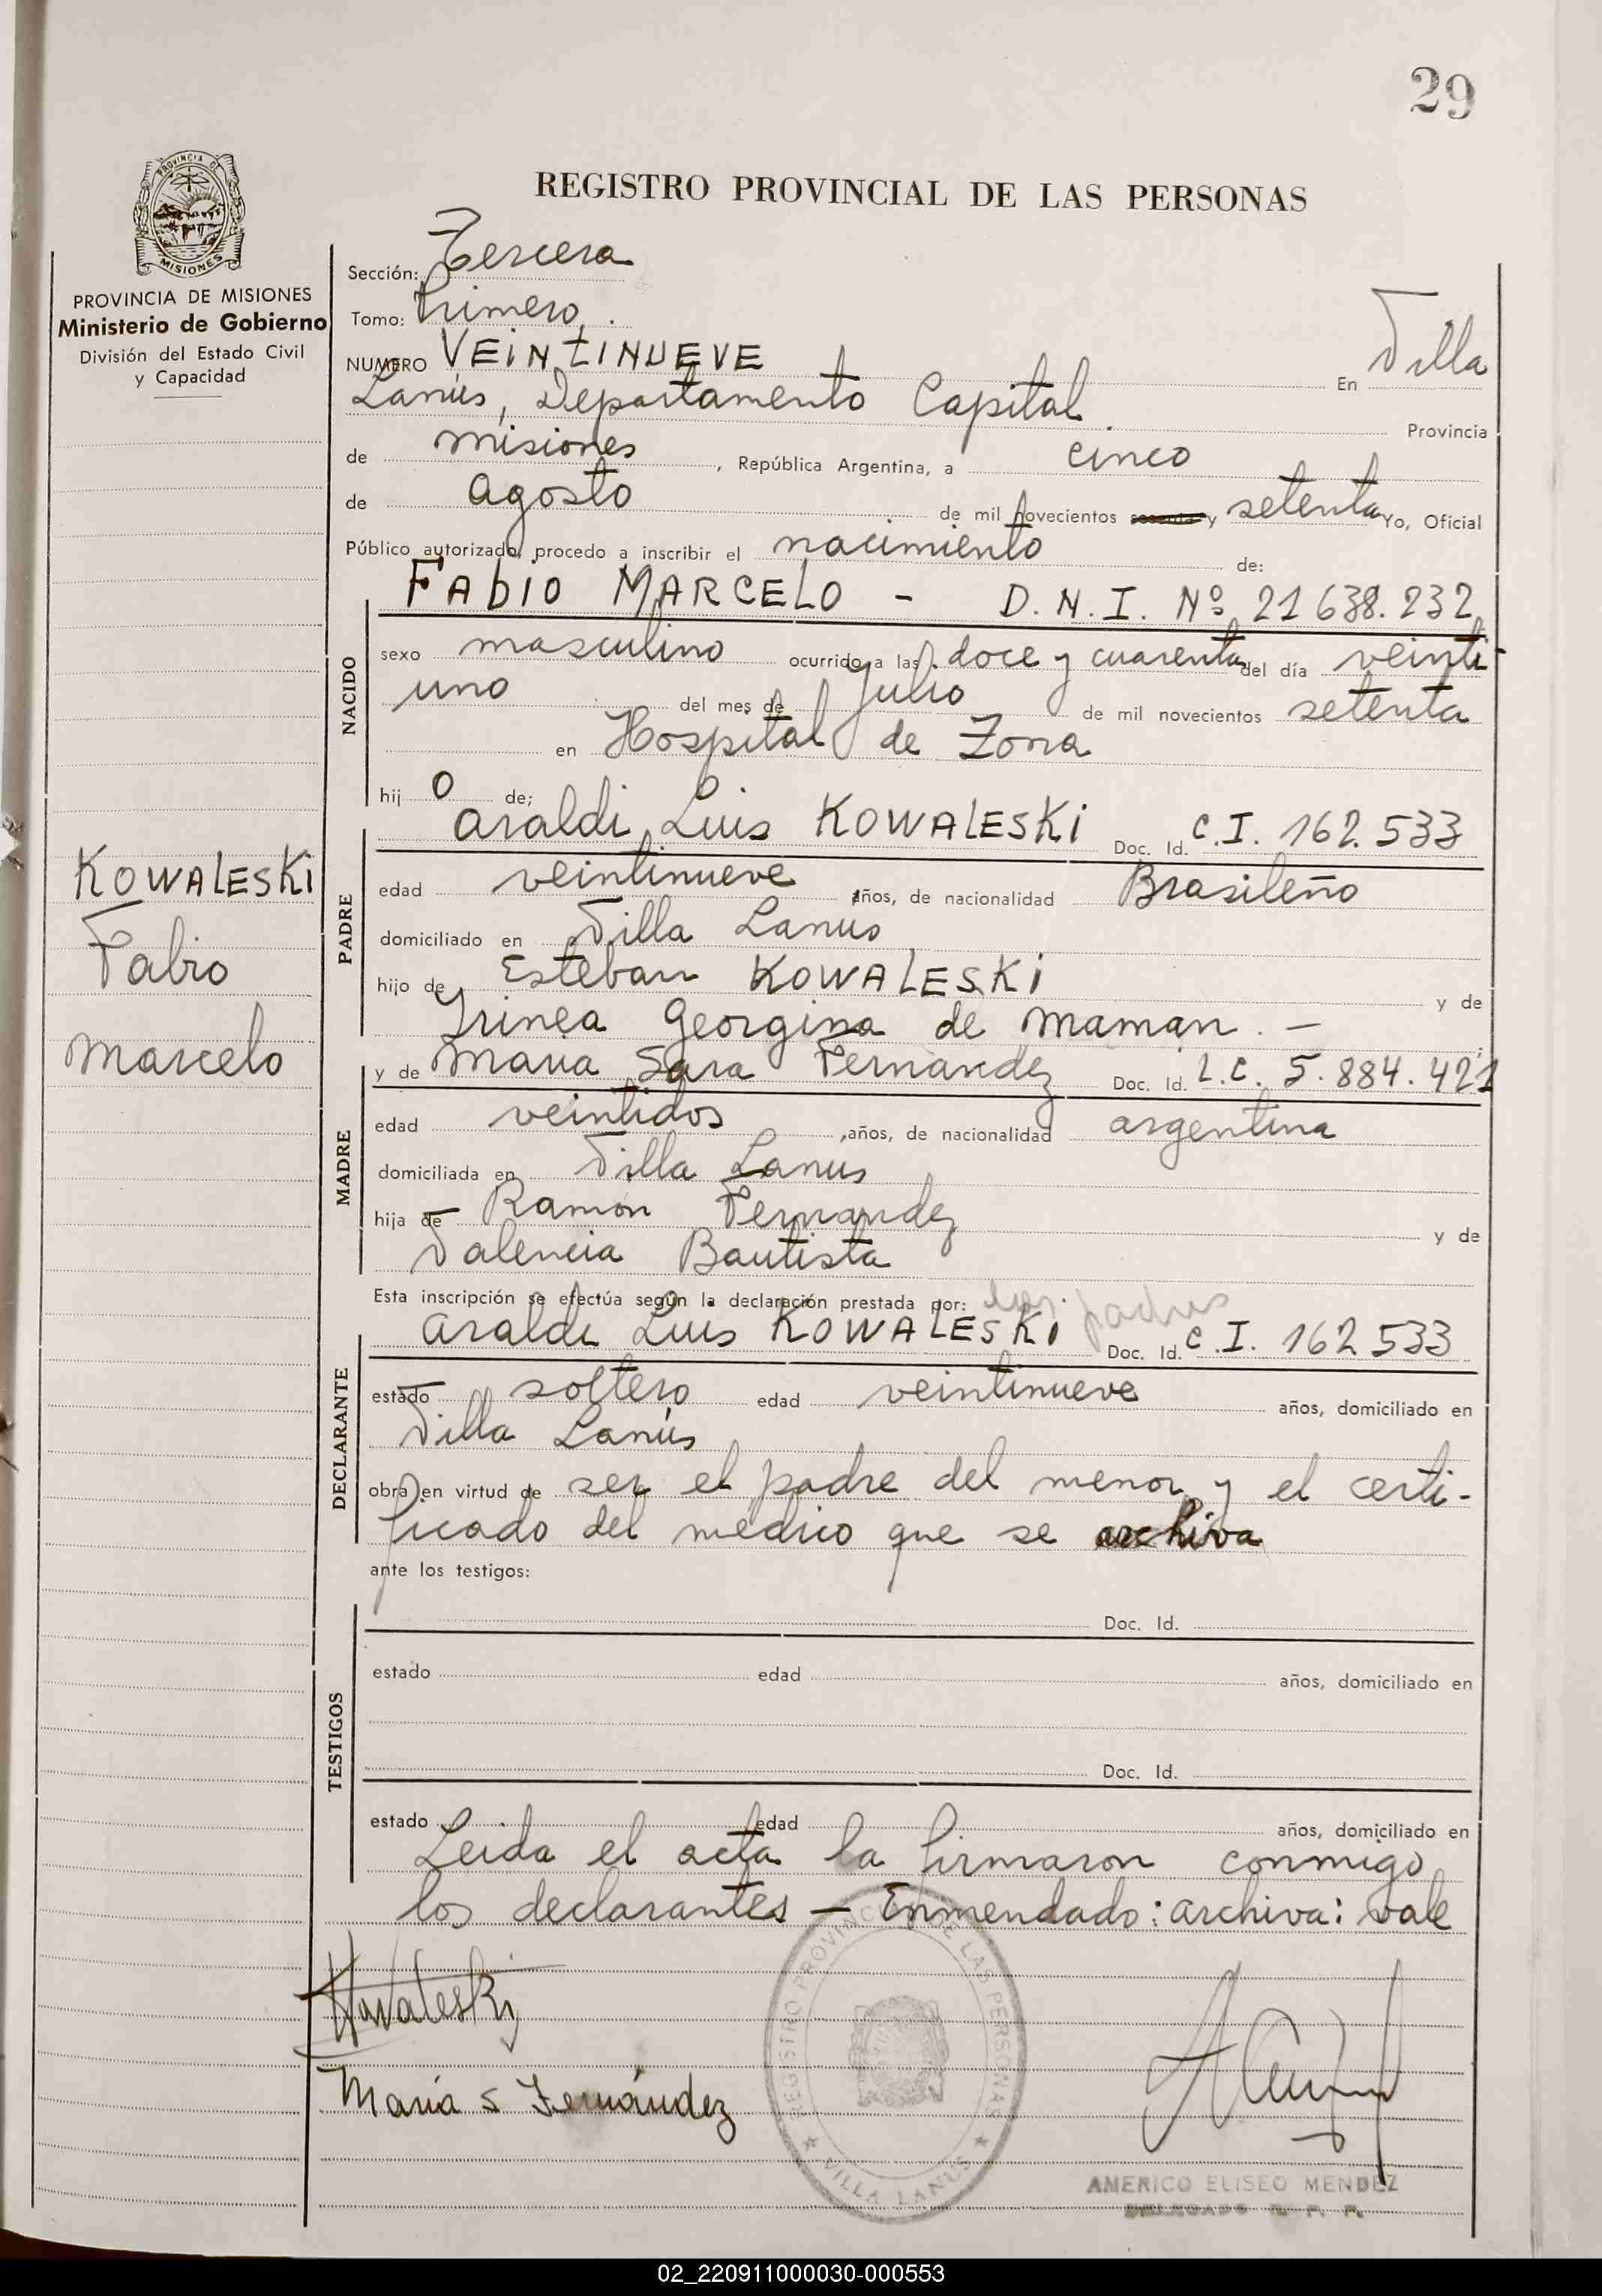 29
REGISTRO PROVINCIAL DE LAS PERSONAS
PROVINCIA DE MISIONES
PROVINCIA DE MISIONES
Ministerio de Gobierno
División del Estado Civil
y Capacidad
Sección: Tercera
Tomo: Primero
NUMERO VEINTINUEVE En Villa
Lanús, Departamento Capital. Provincia
de Misiones, República Argentina, a cinco
de agosto de mil novecientos sesenta y setenta Yo, Oficial
Público autorizado, procedo a inscribir el nacimiento de:
FAbIO MARCELO - D.N.I. Nº 21638.232
NACIDO
sexo masculino ocurrido a las doce y cuarenta del día veinti-
uno del mes de Julio de mil novecientos setenta
en Hospital de Zona
hijo de;
Araldi Luis KOWALESKI Doc. Id. C.I. 162.533
KOWALESKI
Fabio
Marcelo
PADRE
edad veintinueve años, de nacionalidad Brasileño
domiciliado en Villa Lanus
hijo de Esteban KOWALESKI y de
Yrinea Georgina de Maman. -
y de Maria Sara Fernandez Doc. Id. L.C. 5.884.421
MADRE
edad veintidos ,años, de nacionalidad argentina
domiciliada en Villa Lanus
hija de Ramón Fernandez y de
Valencia Bautista
Esta inscripción se efectúa según la declaración prestada por: los padres
Araldi Luis KOWALESKI Doc. Id. C.I. 162533
DECLARANTE
estado soltero edad veintinueve años, domiciliado en
Villa Lanús
obra en virtud de ser el padre del menor y el certi-
ficado del medico que se archiva
ante los testigos:
Doc. Id.
TESTIGOS
estado edad años, domiciliado en
Doc. Id.
estado edad años, domiciliado en
Leida el acta la firmaron conmigo
los declarantes - Enmendado: archiva: vale
Kowaleski
María S Fernández
REGISTRO PROVINCIAL DE LAS PERSONAS
★ VILLA LANUS ★
AMERICO ELISEO MENDEZ
DELEGADO R. P. P.
02_220911000030-000553